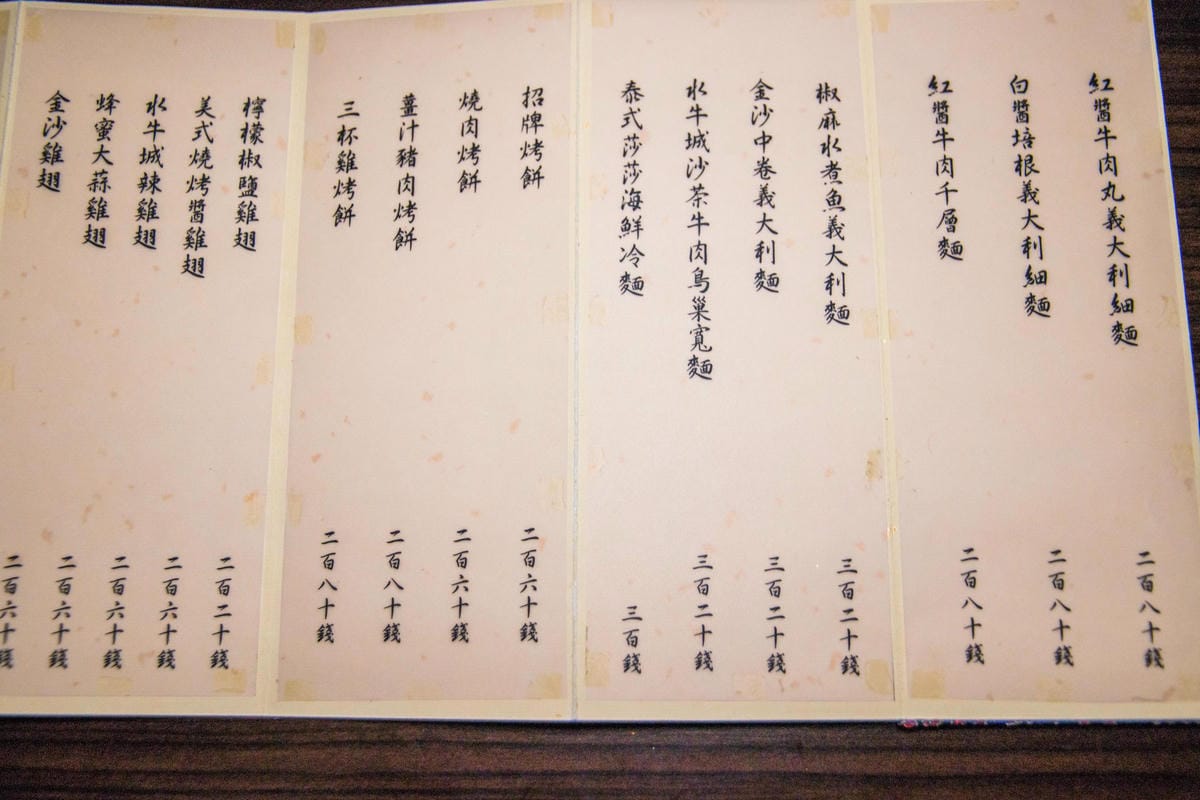 紅醬牛肉丸義大利細麵
二百八十錢
白醬培根義大利細麵
二百八十錢
紅醬牛肉千層麵
二百八十錢
椒麻水煮魚義大利麵
三百二十錢
金沙中卷義大利麵
三百二十錢
水牛城沙茶牛肉鳥巢寬麵
三百二十錢
泰式莎莎海鮮冷麵
三百錢
招牌烤餅
二百六十錢
燒肉烤餅
二百六十錢
薑汁豬肉烤餅
二百八十錢
三杯雞烤餅
二百八十錢
檸檬椒鹽雞翅
二百二十錢
美式燒烤醬雞翅
二百六十錢
水牛城辣雞翅
二百六十錢
蜂蜜大蒜雞翅
二百六十錢
金沙雞翅
二百六十錢